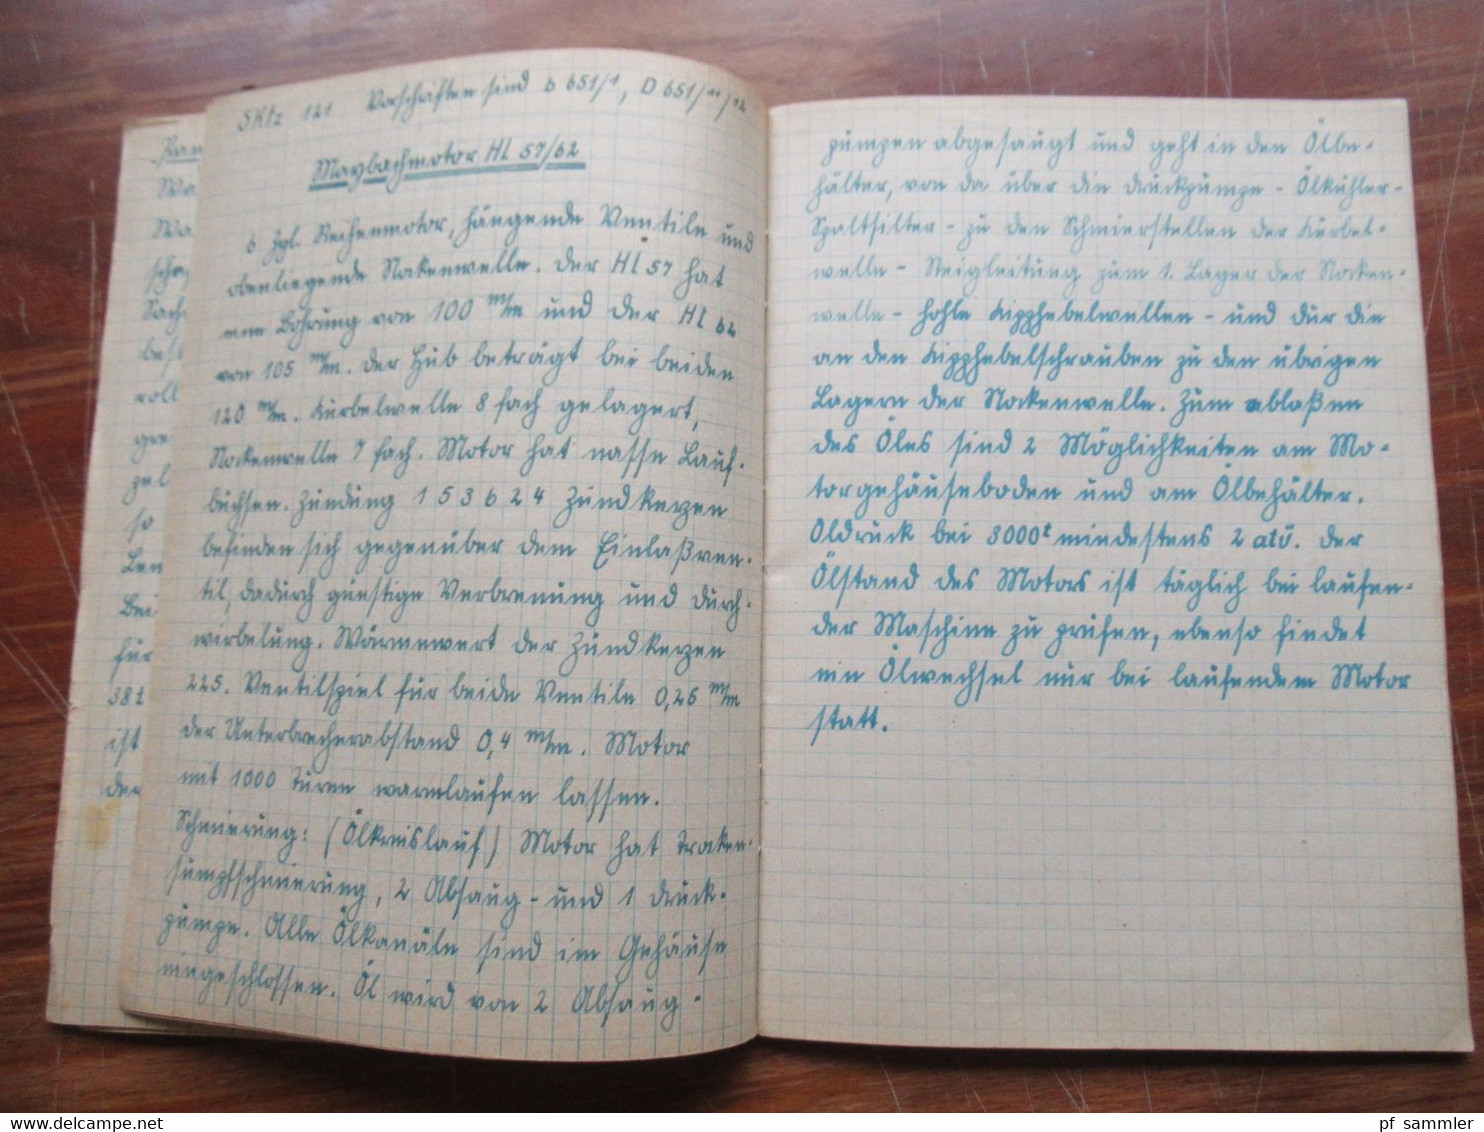 SKfz 121 Vorschriften sind D 651/1, D 651/11/12
Maybachmotor HL 57/62
6 zyl. Reihenmotor, hängende Ventile und
obenliegende Nockenwelle. Der HL 57 hat
eine Bohrung von 100 m/m und der HL 62
von 105 m/m. Der Hub beträgt bei beiden
120 m/m. Kurbelwelle 8 fach gelagert,
Nockenwelle 7 fach. Motor hat nasse Lauf-
buchsen. Zündung 1 5 3 6 2 4 Zündkerzen
befinden sich gegenüber dem Einlaßven-
til, dadurch günstige Verbrenung und Durch-
wirbelung. Wärmewert der Zündkerzen
225. Ventilspiel für beide Ventile 0,25 m/m
der Unterbrecherabstand 0,4 m/m. Motor
mit 1000 Turen warmlaufen lassen.
Schmierung: (Ölkreislauf) Motor hat Trocken-
sumpfschmierung, 2 Absaug- und 1 Druck-
pumpe. Alle Ölkanäle sind im Gehäuse
eingeschlossen. Öl wird von 2 Absaug-
pumpen abgesaugt und geht in den Ölbe-
hälter, von da über die Druckpumpe - Ölkühler -
Spaltfilter - zu den Schmierstellen der Kurbel-
welle - Steigleitung zum 1. Lager der Nocken-
welle - hohle Kipphebelwellen - und dur die
an den Kipphebelschrauben zu den übrigen
Lagern der Nockenwelle. Zum ablaßen
des Öles sind 2 Möglichkeiten am Mo-
torgehäuseboden und am Ölbehälter.
Öldruck bei 3000t mindestens 2 atü. Der
Ölstand des Motors ist täglich bei laufen-
der Maschine zu prüfen, ebenso findet
ein Ölwechsel nur bei laufendem Motor
statt.
pf_sammler